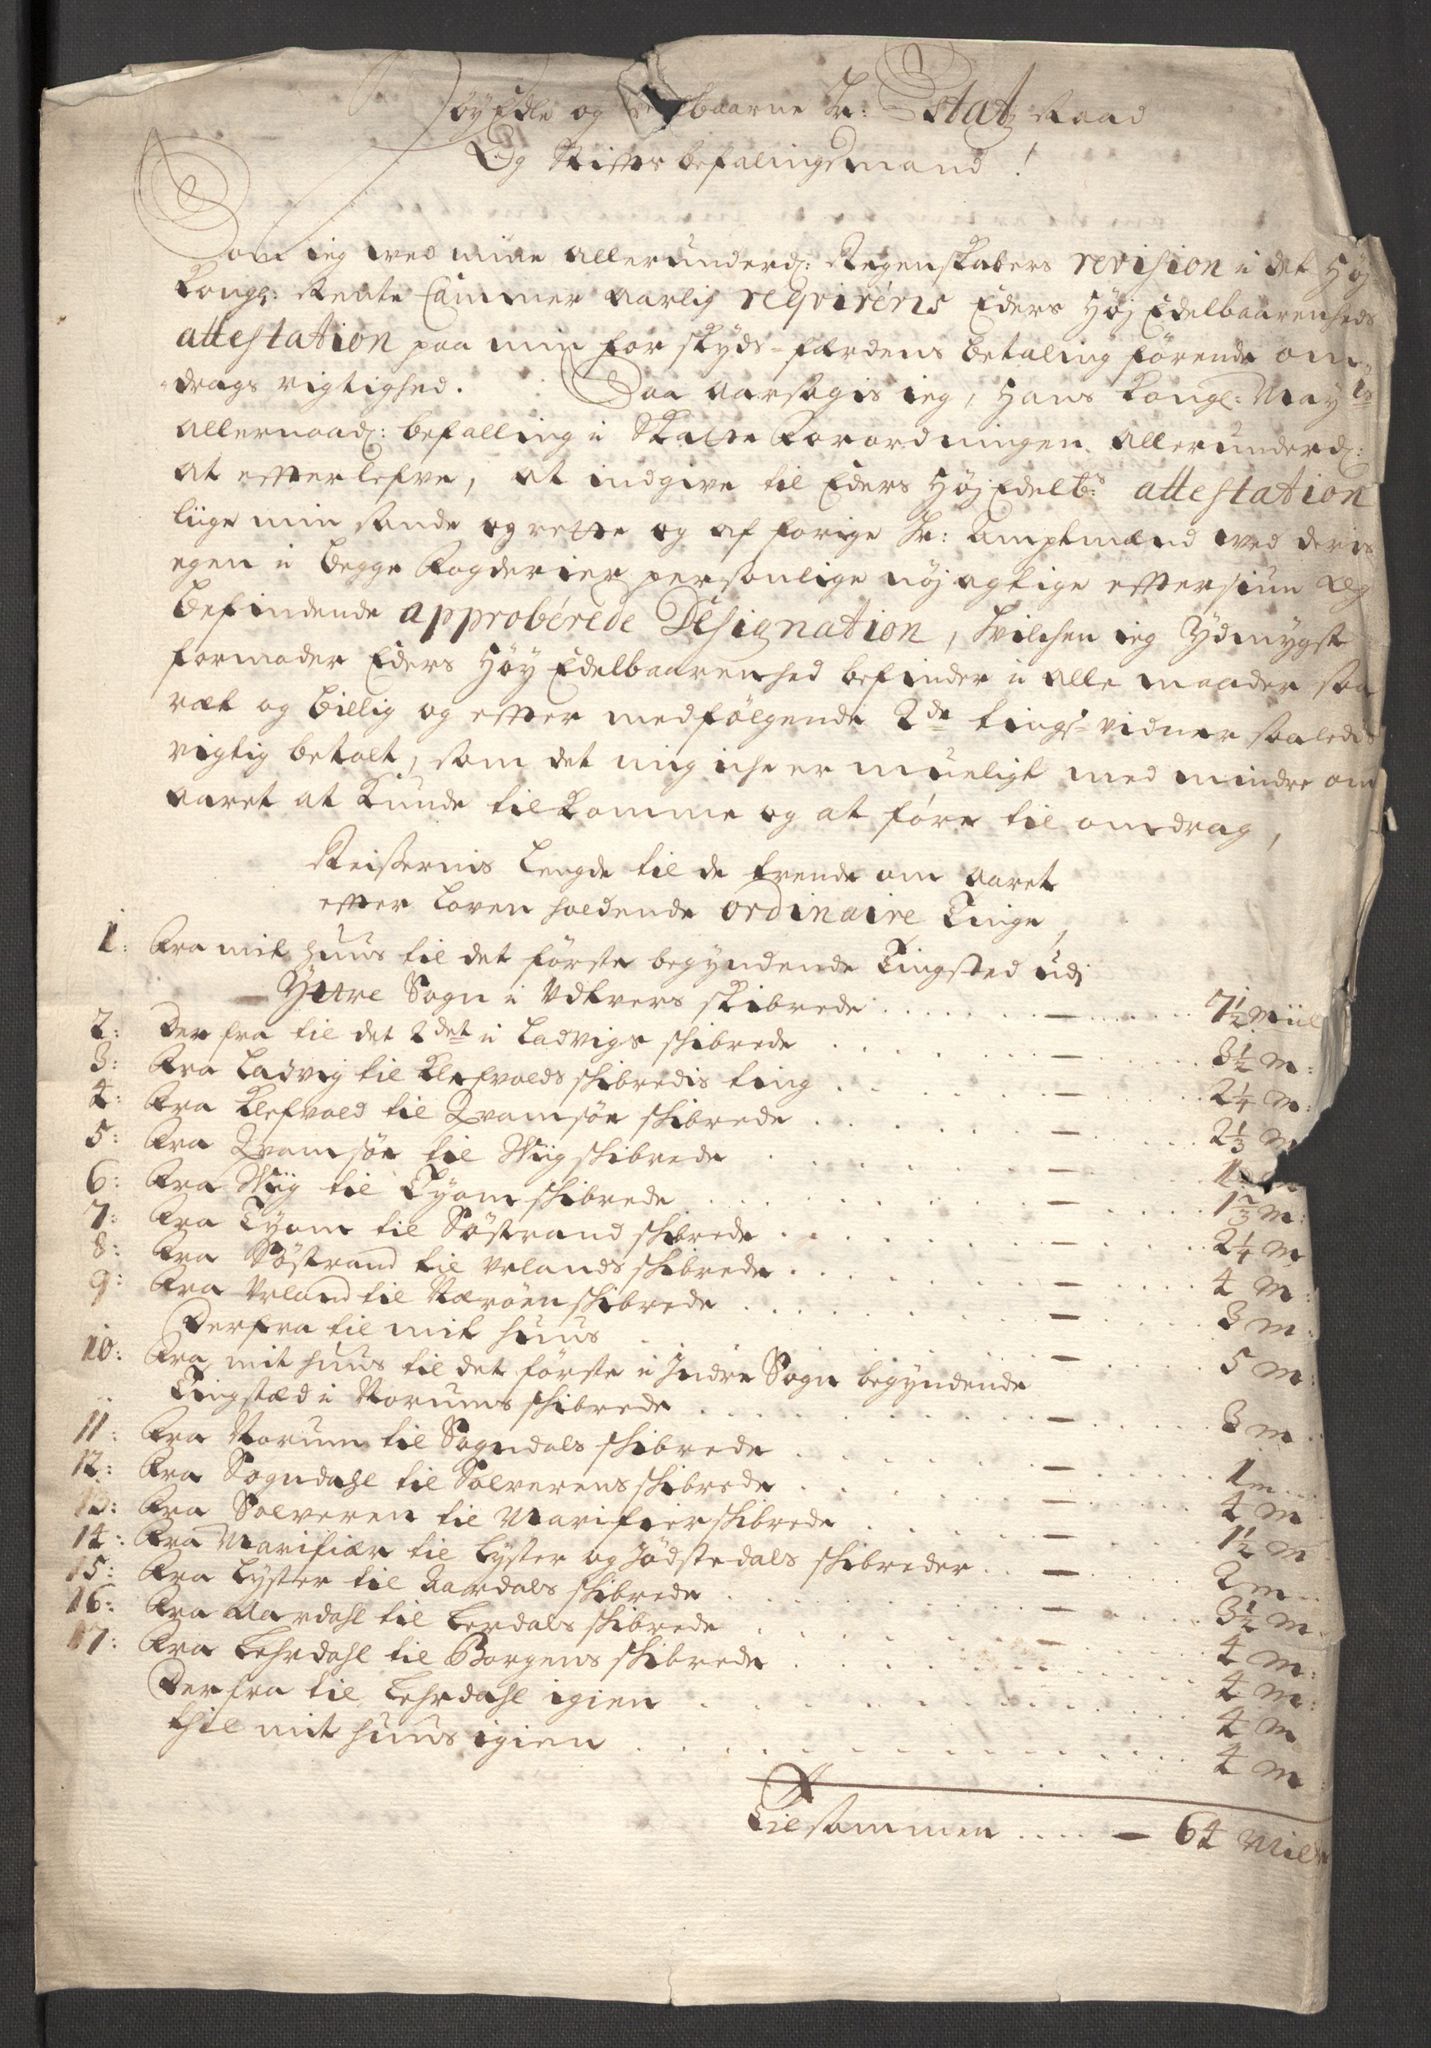 HøyEdle og baarne Hr: Etatz Raad
Og Stifts befalingsmand!
Som ieg wed mine allerunderd: Regenskabers revision i det Høj
Kongl: Rente Cammer aarlig reqvireris Eders HøjEdelbaarenheds
attestation paa min for skyds-færdens betaling førende om-
drags rigtighed. Saa aarsagis ieg, Hans Kongl: May:ts
allernaad: befalling i Skatte Forordningen allerunderd:
at efterlefve, at indgive til Eders HøjEdelb:s attestation
liige min sande og rette og af forige Hr: Amptmænd wed deris
egen i begge Fogderier personlige nøjagtige eftersiun og
befindende approberede Designation, hvilchen ieg Ydmygst
formoder Eders HøyEdelbaarenhed befinder i alle maader saa
ræt og billig og efter medfølgende 2de tings-vidner saaledis
rigtig betalt, som det mig iche er mueligt med mindre om
aaret at kunde tilkomme og at føre til omdrag,
Reisernis Lengde til de trende om aaret
efter Loven holdende ordinaire Tinge,
1: Fra mit huus til det første begyndende Tingsted udj
Yttre Sogn i Udtvers skibrede . . . — . . . 7½ Miil
2: Der fra til det 2det i Ladvigs skibrede . . . — . . . 3½ M:
3: Fra Ladvig til Klefvolds skibredis ting . . . — . . . 2¼ M:
4: Fra Klefvold til Qvamsøe skibrede . . . — . . . 2⅓ M
5: Fra Qvamsøe til Wiig skibrede . . . — . . . 1
6: Fra Wiig til Tyom skibrede . . . — . . . 1⅔ M:
7: Fra Tyom til Søstrand skibrede . . . — . . . 2¼ M
8: Fra Søstrand til Urlands skibrede . . . — . . . 4 M:
9: Fra Urland til Nærøen skibrede . . . — . . . 3 M:
Derfra til mit huus . . . — . . . 5 M:
10: Fra mit huus til det første i Indre Sogn begyndende
Tingstæd i Norums skibrede . . . — . . . 3 M
11: Fra Norum til Sogndals skibrede . . . — . . . 1 M
12: Fra Sogndahl til Solverens skibrede . . . — . . . 4 M
13: Fra Solveren til Marifier skibrede . . . — . . . 1½ M
14: Fra Marifiær til Lyster og Jødstedals skibreder . . — . . . 2 M
15: Fra Lyster til Aardals skibrede . . . — . . . 3½ M
16: Fra Aardahl til Lerdals skibrede . . . — . . . 4 M:
17: Fra Lehrdahl til Borgens skibrede . . . 4 M:
Der fra til Lehrdahl igien . . . 4 M
thil mit huus igien . . . 4 M:
Tilsammen . . . . — 64 Mile